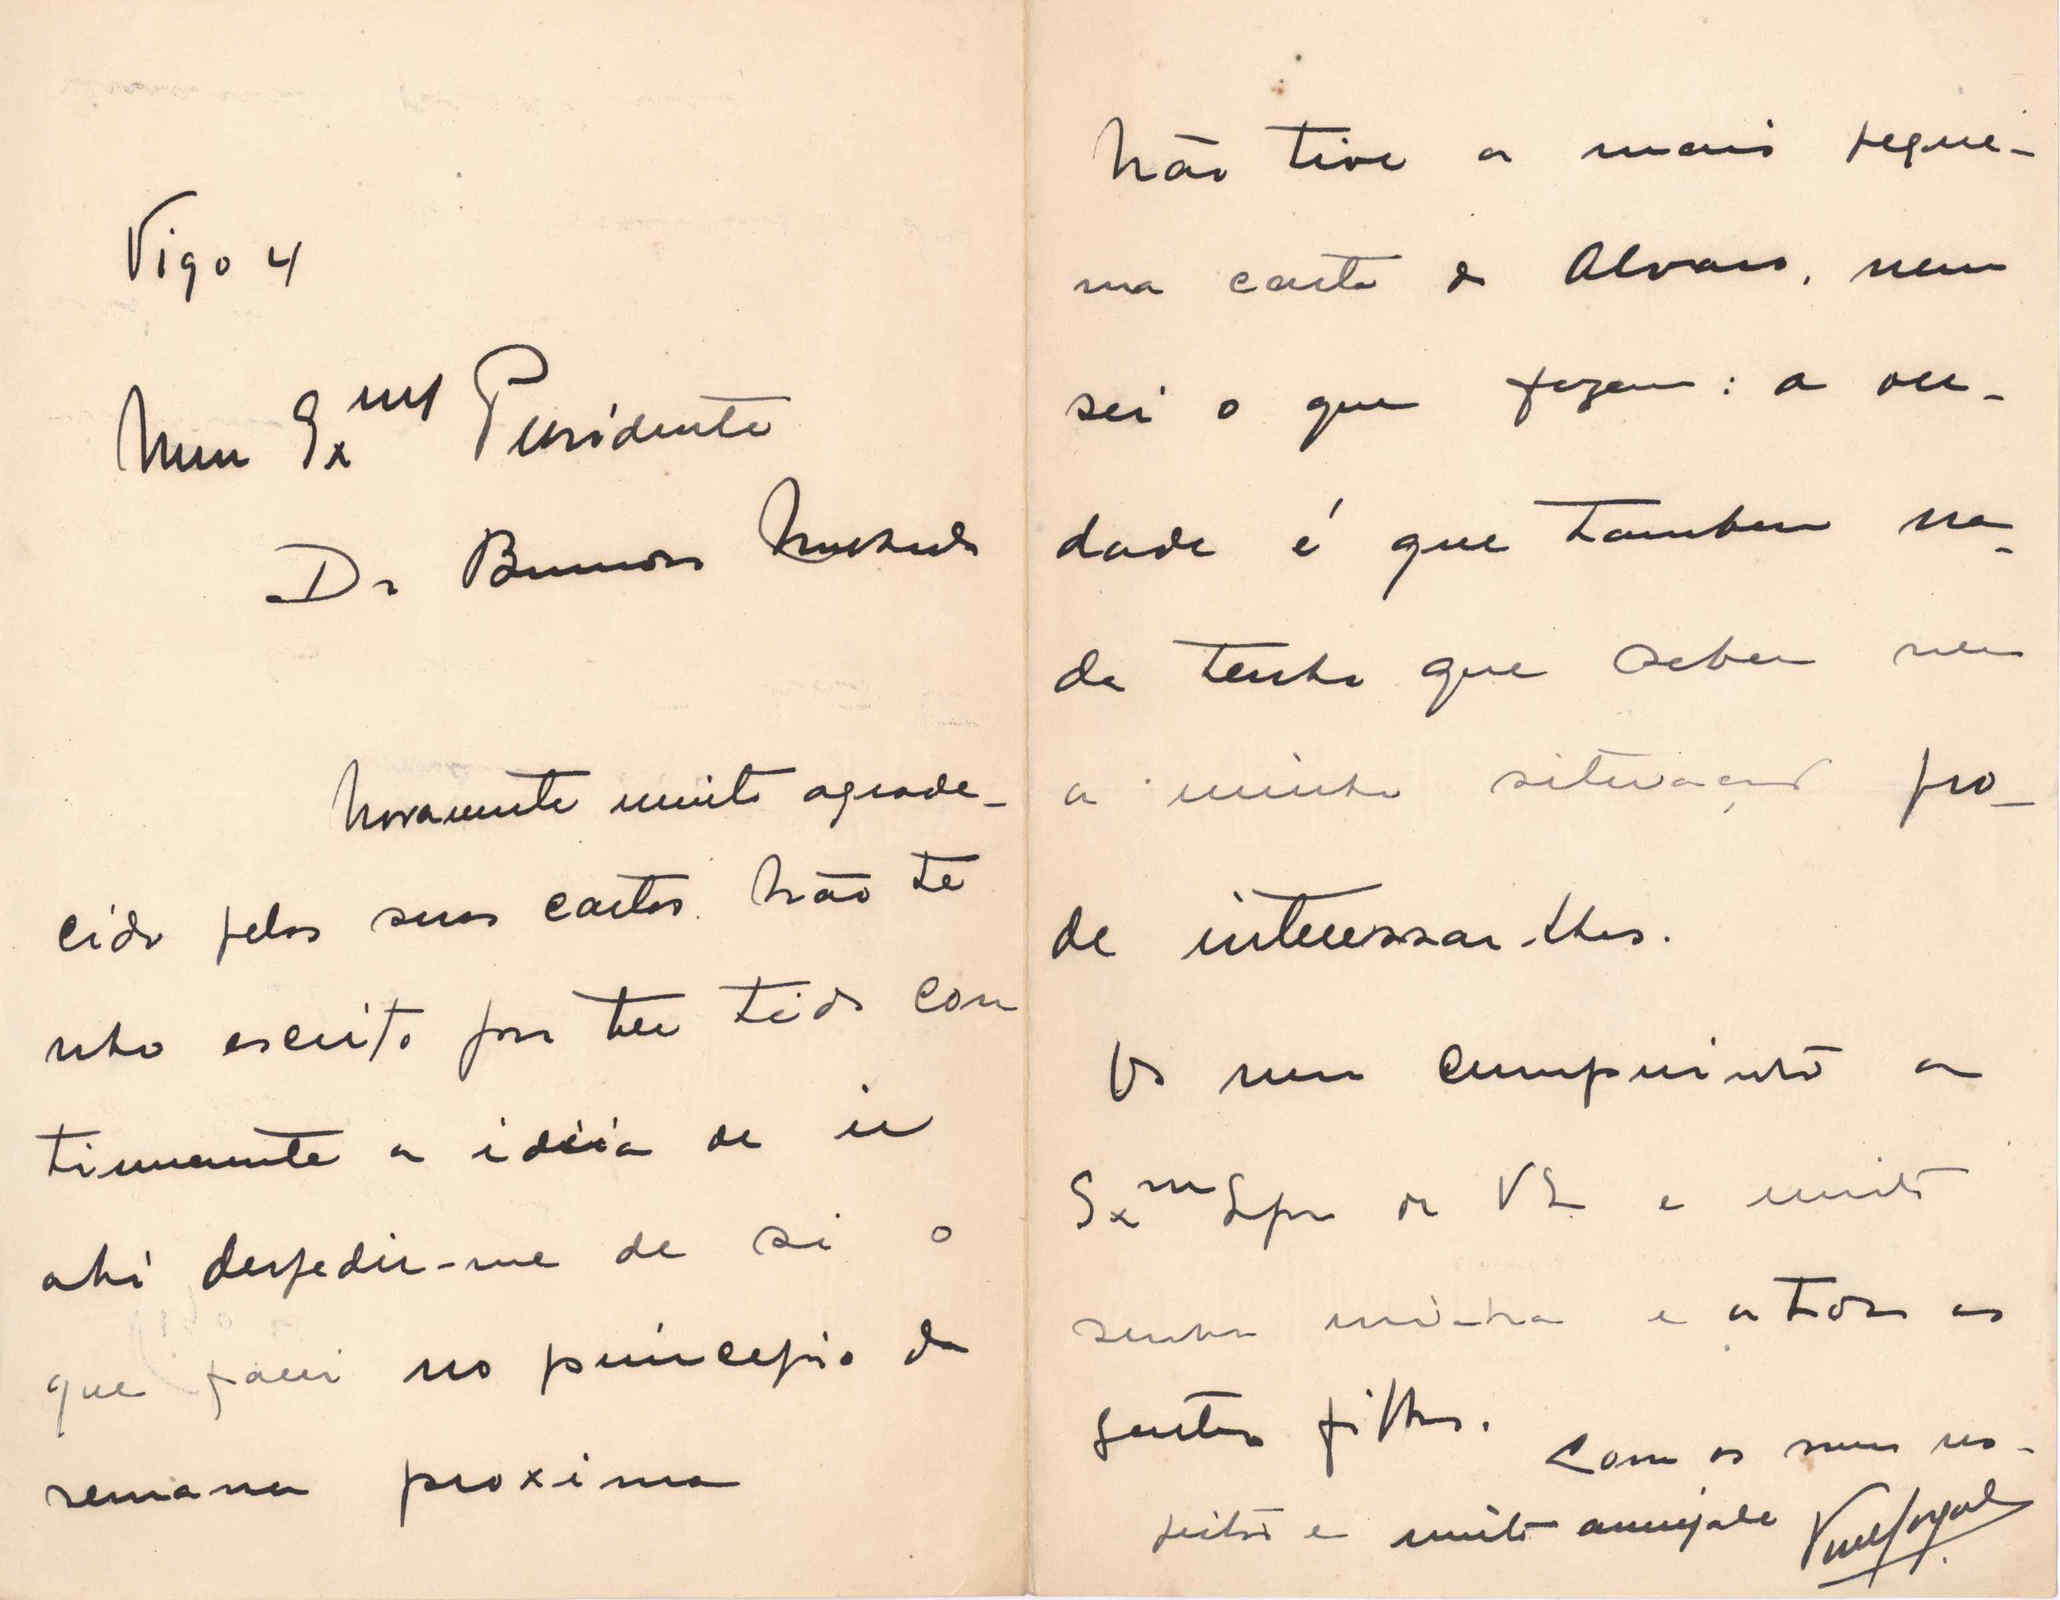 Vigo 4
Meu Exmo Presidente
Dr Bernardino Machado
Novamente muito agrade-
cido pelas suas cartas. Não te
nho escrito por ter tido con
tinuamente a idéia de ir
ahi despedir-me de si o
que farei no principio da
semana proxima
Não tive a mais peque-
na carta do Alvaro, nem
sei o que fazem: a ver-
dade é que tambem na-
da tenho que saber nem
a minha situação po-
de interessar-lhes.
Os meus cumprimentos a
Exma de VE e muito
senhora minha e a todos os
seus filhos. Com os meus res-
peitos e muito amizade